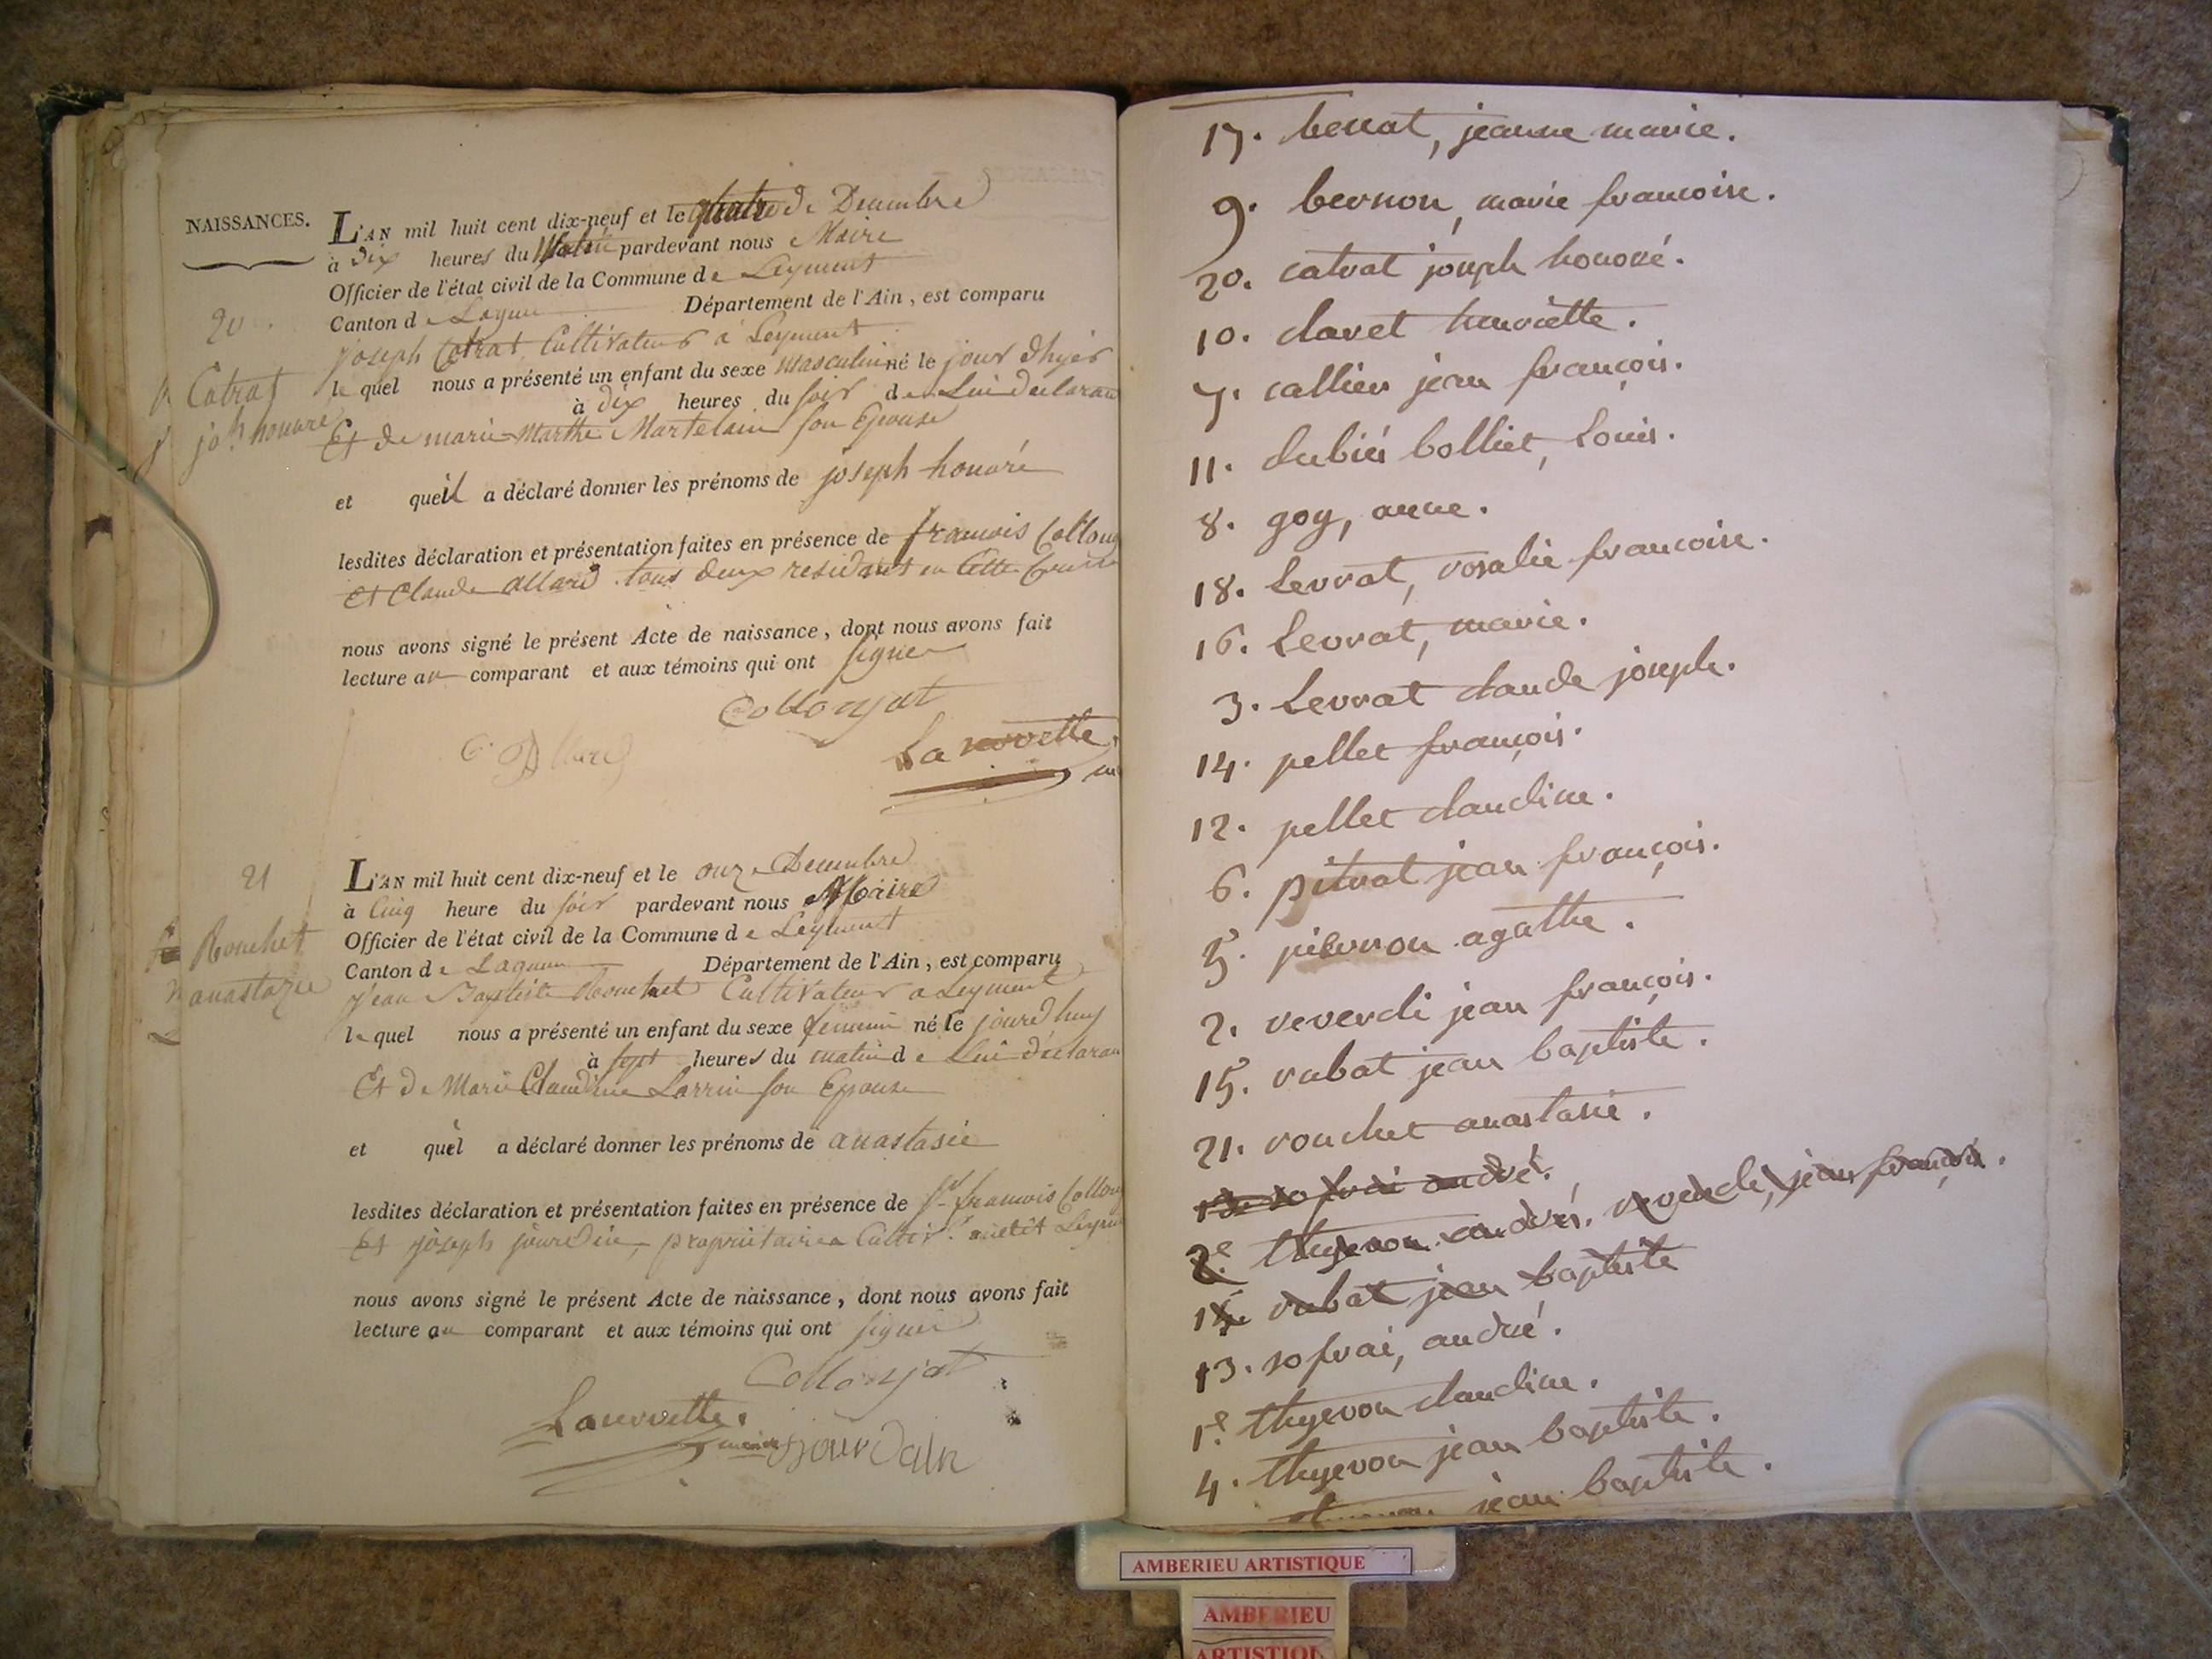 NAISSANCES.
L'AN mil huit cent dix-neuf et le quatre de Decembre
à dix heures du Matin pardevant nous Maire
Officier de l'état civil de la Commune de Leyment
Canton de Lagnieu Département de l'Ain, est comparu
20.
joseph Catrat Cultivateur a Leyment
Catrat
joh. honnoré
le quel nous a présenté un enfant du sexe masculin né le jour dhyer
à dix heures du soir de Lui declarant
Et de marie Marthe Martelain son Epouse
et qu'il a déclaré donner les prénoms de joseph honoré
lesdites déclaration et présentation faites en présence de francois Collon
Et Claude allard tous deux residants en Cette
nous avons signé le présent Acte de naissance, dont nous avons fait
lecture au comparant et aux témoins qui ont signer
Collonjat
C. Allard
Larrovette
21
L'AN mil huit cent dix-neuf et le onze Decembre
à Cinq heure du soir pardevant nous Maire
Officier de l'état civil de la Commune de Leyment
Rouchet
anastazie
Canton de Lagnieu Département de l'Ain, est comparu
jean Baptiste Rouchet Cultivateur a Leyment
le quel nous a présenté un enfant du sexe feminin né le jourdhuy
à sept heures du matin de Lui declarant
Et de Marie Claudine Larrin son Epouse
et qu'el a déclaré donner les prénoms de anastasie
lesdites déclaration et présentation faites en présence de sr. francois Collon
Et joseph jourdin, proprietaire Cultivr. audit Leyme
nous avons signé le présent Acte de naissance, dont nous avons fait
lecture au comparant et aux témoins qui ont signer
Collonjat
Larrovette.
jourdain
17. berrat, jeanne marie.
9. bernon, marie francoise.
20. catrat joseph honoré.
10. clavet henriette.
7. callier jean françois.
11. dubié bolliet, Louis.
8. goy, anne.
18. Levrat, rosalie francoise.
16. Levrat, marie.
3. Levrat claude joseph.
14. pellet françois.
12. pellet claudine.
6. pitrat jean françois.
5. pièrron agathe.
2. reverdi jean françois.
15. rubat jean baptiste.
21. rouchet anastasie.
13. sofrai andré.
2e. thyevon andré. reverdi, jean françois.
15 rubat jean baptiste
13. sofrai, andré.
1e. thyevon claudine.
4. thyevon jean baptiste.
jean baptiste.
AMBERIEU ARTISTIQUE
AMBERIEU
ARTISTIQU